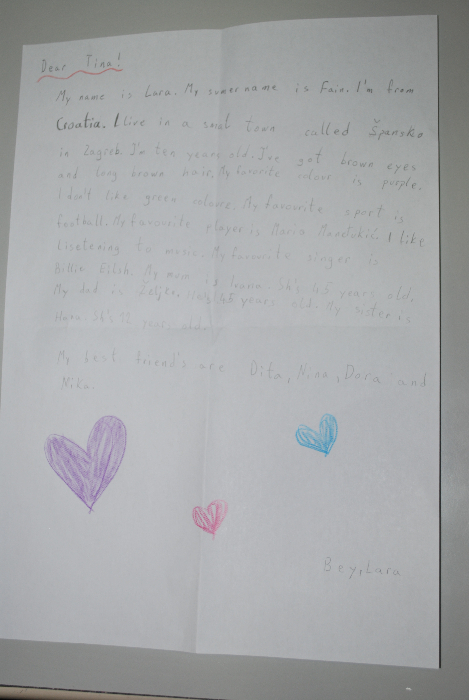 Dear Tina!
My name is Lara. My surnername is Fain. I'm from
Croatia. I live in a small town called Špansko
in Zagreb. I'm ten years old. I've got brown eyes
and long brown hair. My favorite colour is purple.
I don't like green colour. My favourite sport is
football. My favourite player is Mario Mandžukić. I like
Lisetening to music. My favourite singer is
Billie Eilish. My mum is Ivana. Sh's 45 years old.
My dad is Željko. He's 45 years old. My sister is
Hana. Sh's 12 years old.
My best friend's are Dita, Nina, Dora and
Nika.
Bey, Lara